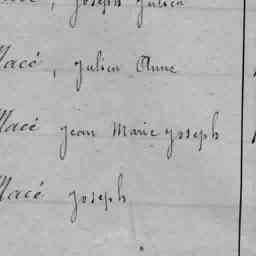 Joseph Julien
Macé, Julien Anne
Macé Jean Marie Joseph
Macé Joseph